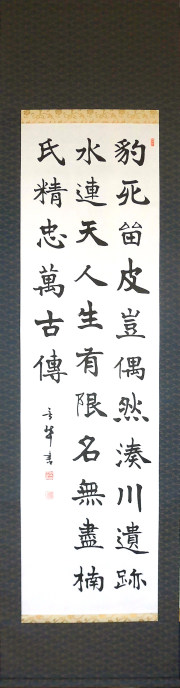 豹死留皮豈偶然湊川遺跡
水連天人生有限名無盡楠
氏精忠萬古傳
書